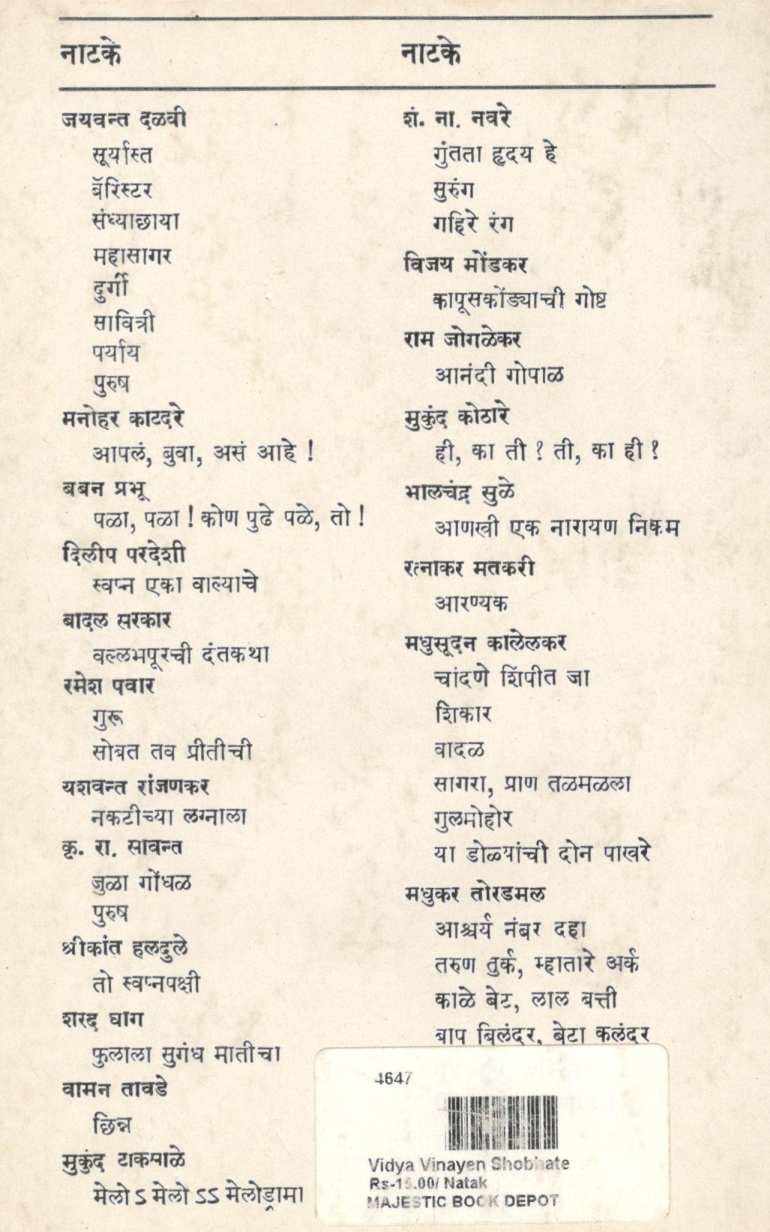 नाटके
जयवन्त दळवी
सूर्यास्त
बॅरिस्टर
संध्याछाया
महासागर
दुर्गी
सावित्री
पर्याय
पुरुष
मनोहर काटदरे
आपलं, बुवा, असं आहे !
बबन प्रभू
पळा, पळा ! कोण पुढे पळे, तो !
दिलीप परदेशी
स्वप्न एका वाल्याचे
बादल सरकार
वल्लभपूरची दंतकथा
रमेश पवार
गुरू
सोबत तव प्रीतीची
यशवन्त रांजणकर
नकटीच्या लग्नाला
कृ. रा. सावन्त
जुळा गोंधळ
पुरुष
श्रीकांत हलदुले
तो स्वप्नपक्षी
शरद घाग
फुलाला सुगंध मातीचा
वामन तावडे
छिन्न
मुकुंद टाकसाळे
मेलो ऽ मेलो ऽऽ मेलोड्रामा
नाटके
शं. ना. नवरे
गुंतता हृदय हे
सुरुंग
गहिरे रंग
विजय मोंडकर
कापूसकोंड्याची गोष्ट
राम जोगळेकर
आनंदी गोपाळ
मुकुंद कोठारे
ही, का ती ? ती, का ही ?
भालचंद्र सुळे
आणखी एक नारायण निकम
रत्नाकर मतकरी
आरण्यक
मधुसूदन कालेलकर
चांदणे शिंपीत जा
शिकार
वादळ
सागरा, प्राण तळमळला
गुलमोहोर
या डोळ्यांची दोन पाखरे
मधुकर तोरडमल
आश्चर्य नंबर दहा
तरुण तुर्क, म्हातारे अर्क
काळे बेट, लाल बत्ती
बाप बिलंदर, बेटा कलंदर
4647
Vidya Vinayen Shobhate
Rs-15.00/ Natak
MAJESTIC BOOK DEPOT